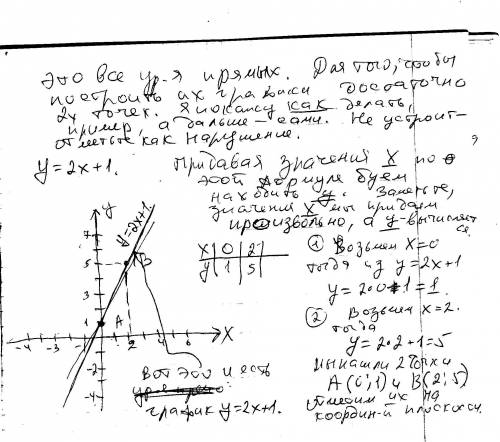 Это все ур-я прямых. Для того, чтобы
построить их графики достаточно
2х точек. Я покажу как делать,
пример, а дальше – сами. Не устроит –
отметьте как нарушение.
y=2x+1. Придавая значения X по
этой формуле буем
находить y. Заметьте,
значения X мы придаем
произвольно, а y - вычисляет
ся.
y
y=2x+1
7
5
3
1
A
B
-4 -3 -2 2 4 6 X
-2
-4
X 0 2
y 1 5
① Возьмем X=0
тогда из y=2x+1
y=2·0+1=1.
② Возьмем x=2.
тогда
y=2·2+1=5
Мы нашли 2 точки
A(0;1) и B(2;5)
Отметим их на
координ-й плоскости.
Вот это и есть
график y=2x+1.